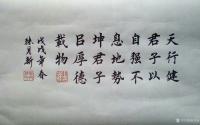 天行健
君子以
自强不
息地势
坤君子
㠯厚德
載物
戊戌年春
月新